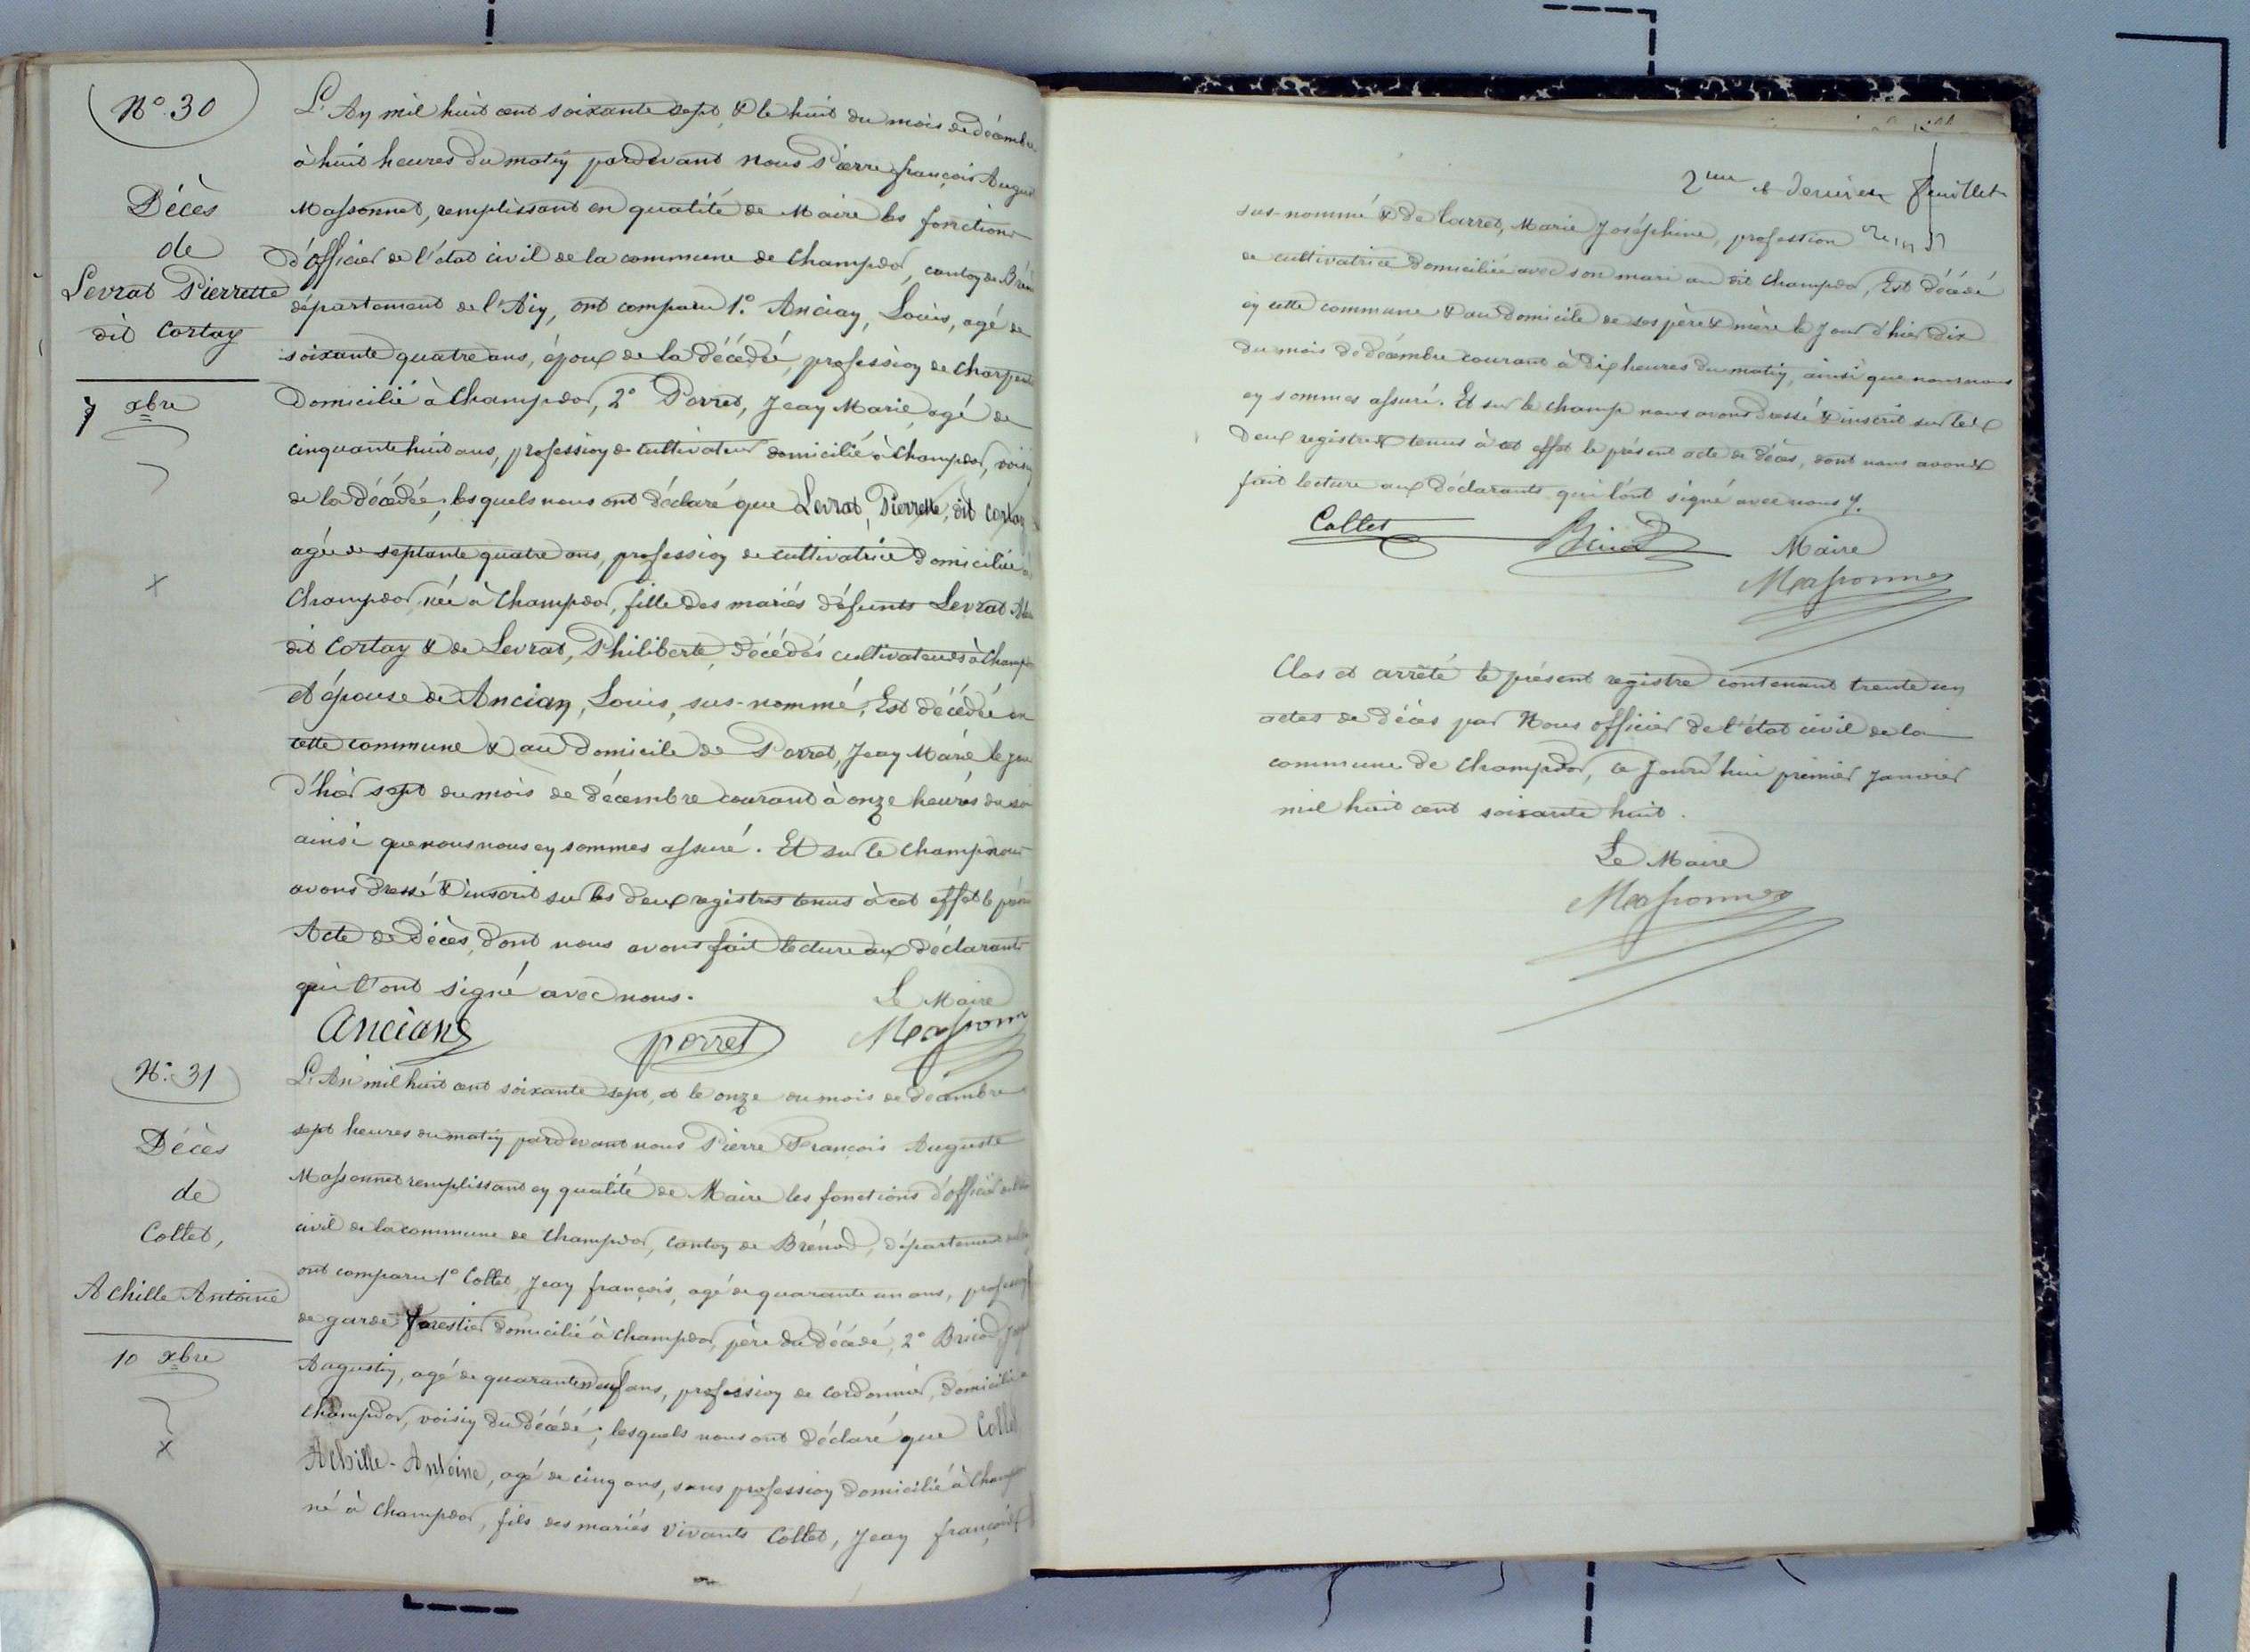 N° 30
Décès
de
Levrat Pierrette
dit Cortay
7 xbre
L'An mil huit cent soixante sept, & le huit du mois de décembre
à huit heures du matin pardevant nous Pierre françois August
Massonnet, remplissant en qualité de Maire les fonctions
d'officier de l'état civil de la commune de Champdor, canton de Brén
département de l'Ain, ont comparu 1° Ancian, Louis, agé de
soixante quatre ans, époux de la décédée, profession de charpent
domicilié à Champdor, 2° Porret, Jean Marie, agé de
cinquante huit ans, profession de cultivateur domicilié à Champdor, voisin
de la décédée; lesquels nous ont déclaré que Levrat, Pierrette, dit Cortay
agée de septante quatre ans, profession de cultivatrice domiciliée à
Champdor, née à Champdor, fille des mariés défunts Levrat
dit Cortay & de Levrat, Philiberte, décédés cultivateurs à Champd
et épouse de Ancian, Louis, sus-nommé, Est décédée en
cette commune & au domicile de Porret, Jean Marie le jour
d'hier sept du mois de décembre courant à onze heures du soir
ainsi que nous nous en sommes assuré. Et sur le champ nous
avons dressé & inscrit sur les deux registres tenus à cet effet le présen
Acte de décès, dont nous avons fait lecture aux déclarants
qui l'ont signé avec nous. Le Maire
Ancian porret Massonn
N° 31
Décès
de
Collet,
Achille Antoine
10 xbre
L'An mil huit cent soixante sept, et le onze du mois de décembre
sept heures du matin pardevant nous Pierre François Auguste
Massonnet remplissant en qualité de Maire les fonctions d'officier de l'état
civil de la commune de Champdor, canton de Brénod, département de l'
ont comparu 1° Collet, Jean françois, agé de quarante un ans, profession
de garde forestier domicilié à Champdor, père du décédé, 2° Bricod,
Augustin, agé de quarante neuf ans, profession de cordonnier, domicilié à
Champdor, voisin du décédé; lesquels nous ont déclaré que Collet
Achille-Antoine, agé de cinq ans, sans profession domicilié à Champ
né à Champdor, fils des mariés vivants Collet, Jean françois
2me et dernier feuillet
sus-nommé & de Carret, Marie Joséphine, profession
de cultivatrice domiciliée avec son mari au dit Champdor, Est décédé
en cette commune & au domicile de ses père & mère le Jour d'hier dix
du mois de décembre courant à dix heures du matin, ainsi que nous nous
en sommes assuré. Et sur le champ nous avons dressé & inscrit sur les
deux registres tenus à cet effet le présent acte de décès, dont nous avons
fait lecture aux déclarants qui l'ont signé avec nous.
Collet Bricod Maire
Massonnet
Clos et arrêté le présent registre contenant trente un
actes de décès par Nous officier de l'état civil de la
commune de Champdor, ce Jourd'hui premier Janvier
mil huit cent soixante huit.
Le Maire
Massonnet